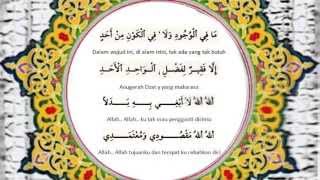 مَا فِي الْوُجُودِ وَلَا فِي الْكَوْنِ مِنْ أَحَدٍ
Dalam wujud ini, di alam inisi, tak ada yang tak butuh
إِلَّا فَقِيرٌ لِفَضْلِ الْوَاحِدِ الْأَحَدِ
Anugerah Dzat yang maha esa
اللهُ اللهُ لَا أَبْغِي بِهِ بَدَلًا
Allah.. Allah.. ku tak mau pengganti dirimu
اللهُ اللهُ مَقْصُودِي وَمُعْتَمَدِي
Allah.. Allah tujuanku dan tempat ku rebahkan diri